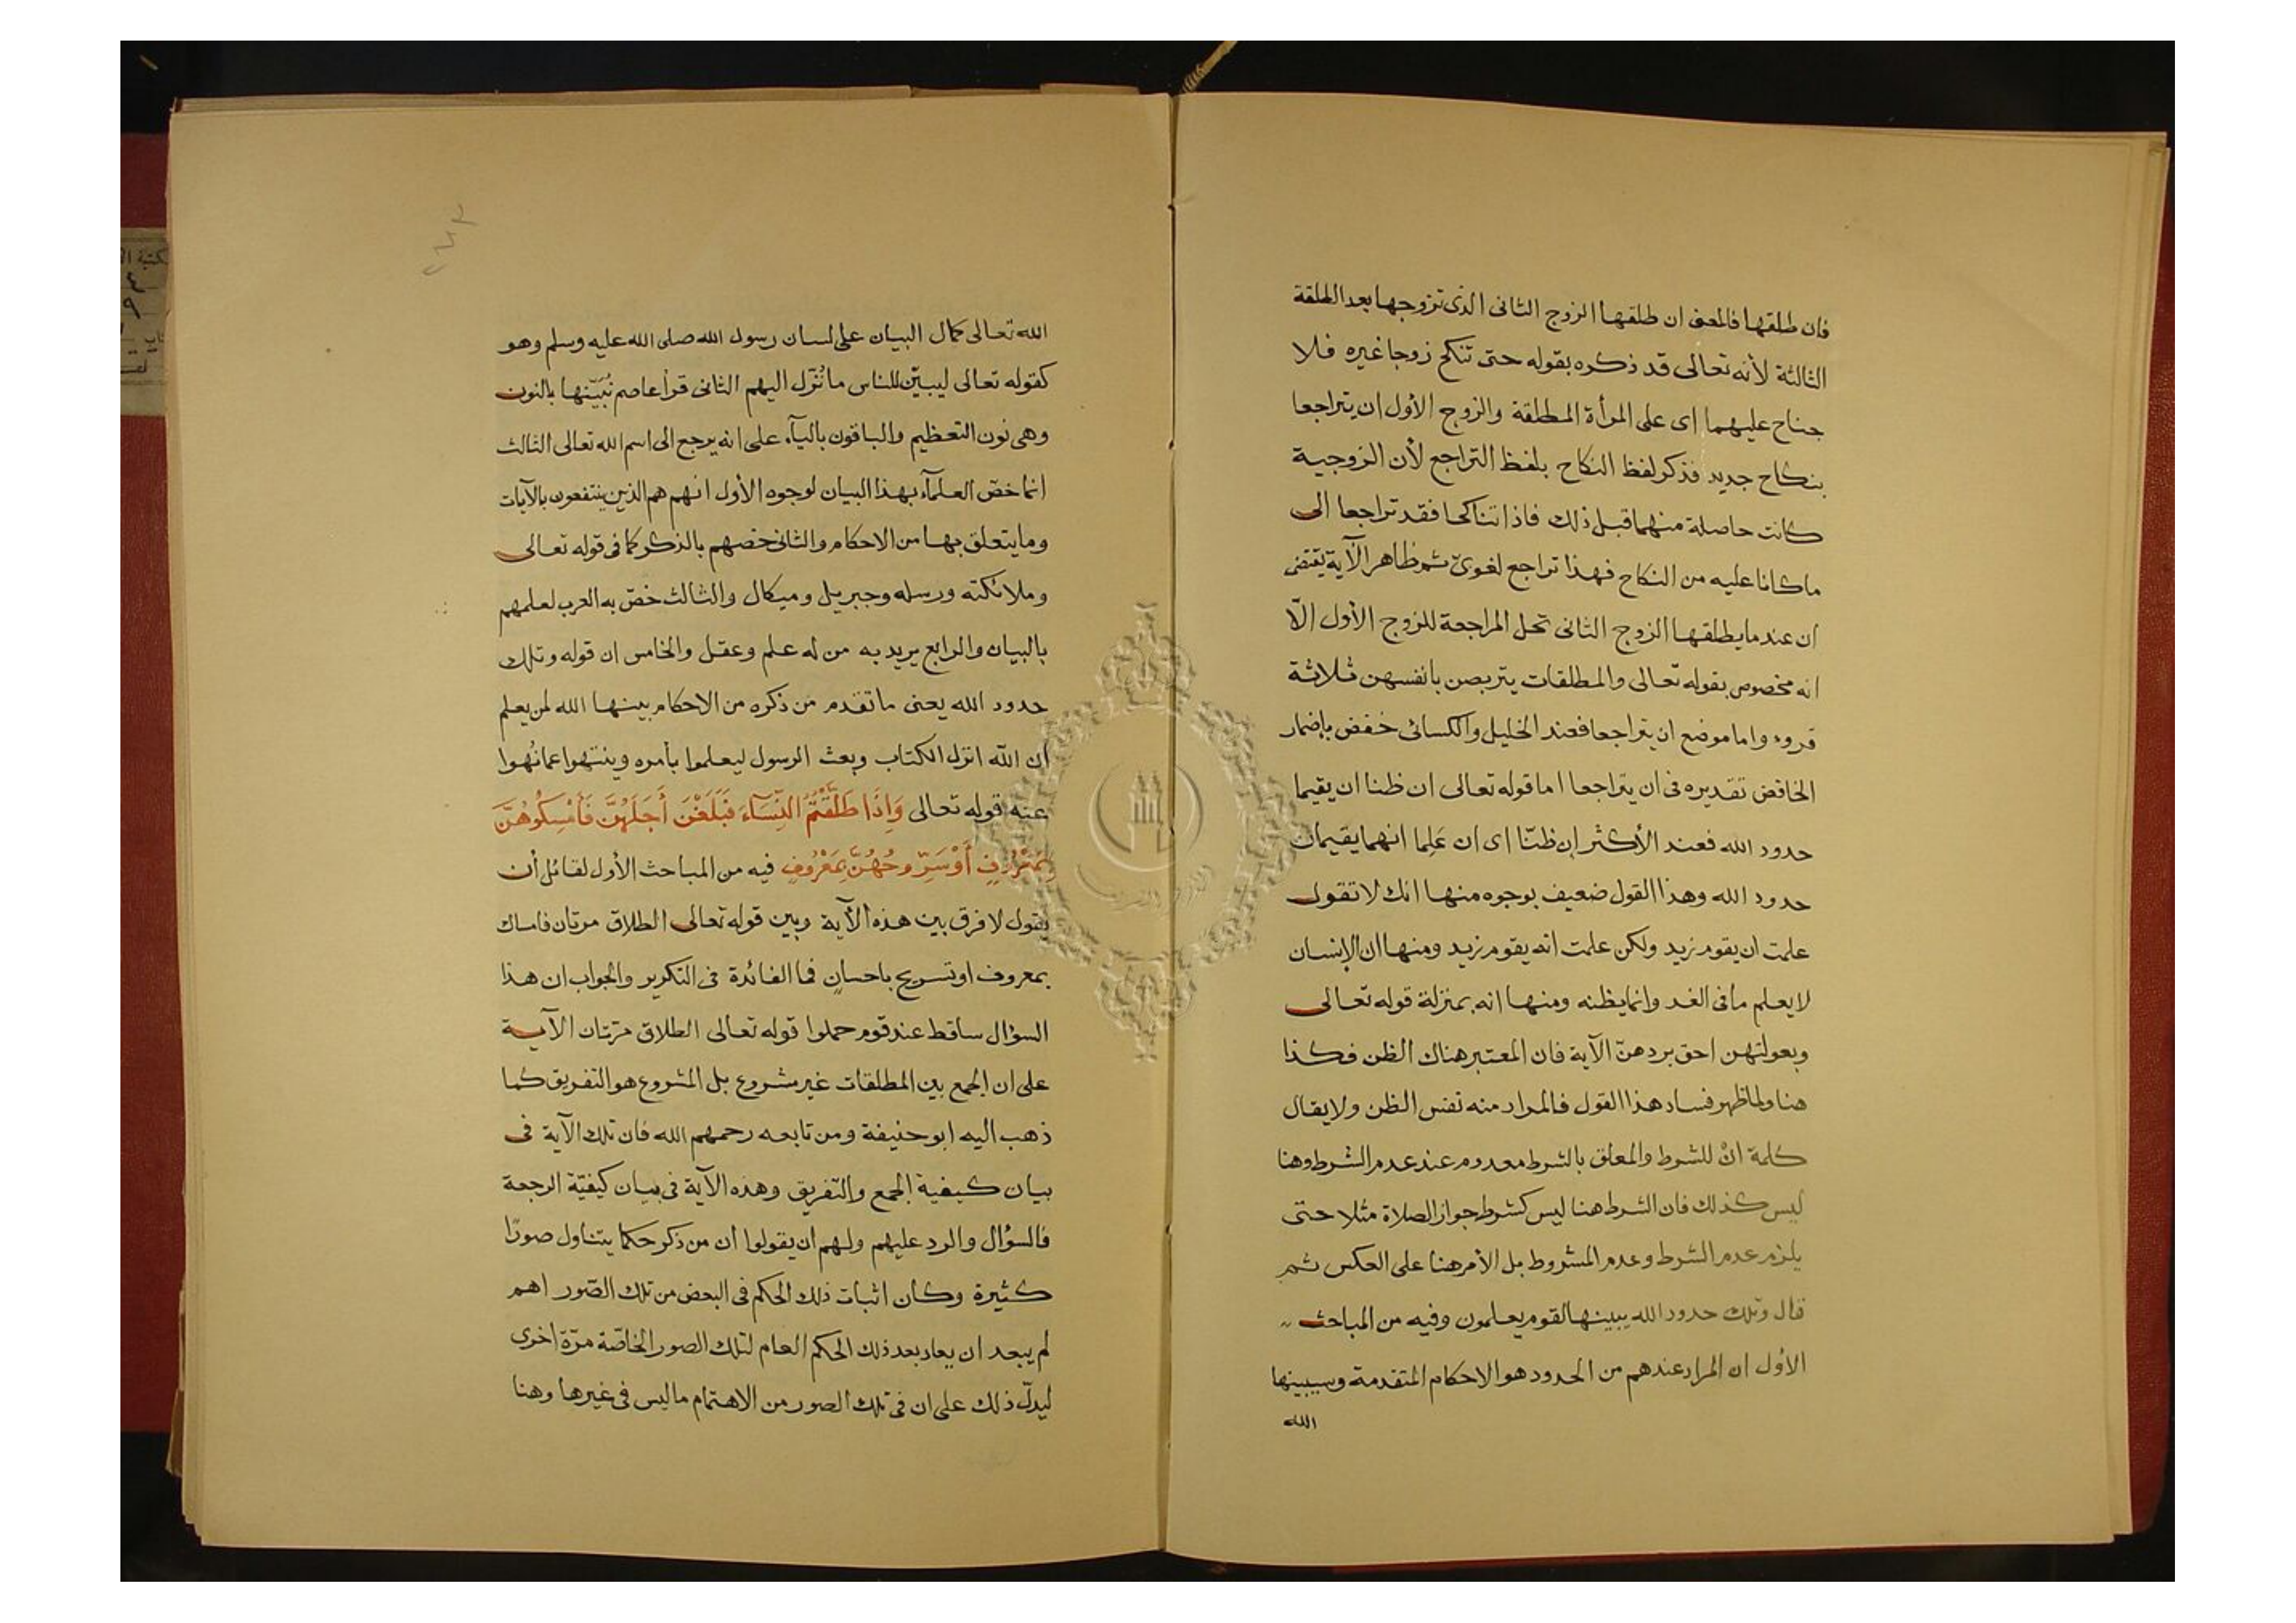 فان طلقها فالمعنى ان طلقها الزوج الثانى الذى تزوجها بعد الطلقة
الثالثة لأنه تعالى قد ذكره بقوله حتى تنكح زوجا غيره فلا
جناح عليهما اى على المرأة المطلقة والزوج الأول ان يتراجعا
بنكاح جديد فذكر لفظ النكاح بلفظ التراجع لأن الزوجية
كانت حاصلة منهما قبل ذلك فاذا تناكحا فقد تراجعا الى
ما كانا عليه من النكاح فهذا تراجع لغوىّ ثم ظاهر الآية يقتضى
ان عند ما يطلقها الزوج الثانى تحل المراجعة للزوج الأول الّا
انه مخصوص بقوله تعالى والمطلقات يتربصن بانفسهن ثلاثة
قروء واما موضع ان يتراجعا فعند الخليل والكسائى خفض بإضمار
الخافض تقديره فى ان يتراجعا اما قوله تعالى ان ظنا ان يقيما
حدود الله فعند الأكثر إن ظنّا اى ان عَلِما انهما يقيمان
حدود الله وهذا القول ضعيف بوجوه منها انك لا تقول
علمت ان يقوم زيد ولكن علمت انه يقوم زيد ومنها ان الإنسان
لا يعلم ما فى الغد وانما يظنه ومنها انه بمنزلة قوله تعالى
وبعولتهن احق بردهنّ الآية فان المعتبر هناك الظن فكذا
هنا ولما ظهر فساد هذا القول فالمراد منه نفس الظن ولا يقال
كلمة انْ للشرط والمعلق بالشرط معدوم عند عدم الشرط وهنا
ليس كذلك فان الشرط هنا ليس كشرط جواز الصلاة مثلا حتى
يلزم عدم الشرط وعدم المشروط بل الأمر هنا على العكس ثم
قال وتلك حدود الله يبينها لقوم يعلمون وفيه من المباحث
الأول ان المراد عندهم من الحدود هو الاحكام المتقدمة وسيبينها
الله
٢٧٣
الله تعالى كمال البيان على لسان رسول الله صلى الله عليه وسلم وهو
كقوله تعالى ليبيّن للناس ما نُزّل اليهم الثانى قرأ عاصم نُبَيّنها بالنون
وهى نون التعظيم والباقون باليآء على انه يرجع الى اسم الله تعالى الثالث
انما خصّ العلمآء بهذا البيان لوجوه الأول انهم هم الذين ينتفعون بالآيات
وما يتعلق بها من الاحكام والثانى خصهم بالذكر كما فى قوله تعالى
وملائكته ورسله وجبريل وميكال والثالث خصّ به العرب لعلمهم
بالبيان والرابع يريد به من له علم وعقل والخامس ان قوله وتلك
حدود الله يعنى ما تقدم من ذكره من الاحكام بينها الله لمن يعلم
أن الله انزل الكتاب وبعث الرسول ليعلموا بأمره وينتهوا عما نُهُوا
عنه قوله تعالى وَإِذَا طَلَّقْتُمُ النِّسَآءَ فَبَلَغْنَ أَجَلَهُنَّ فَأَمْسِكُوهُنَّ
بِمَعْرُوفٍ أَوْ سَرِّحُوهُنَّ بِمَعْرُوفٍ فيه من المباحث الأول لقائل أن
يقول لا فرق بين هذه الآية وبين قوله تعالى الطلاق مرتان فامساك
بمعروف او تسريح باحسان فما الفائدة فى التكرير والجواب ان هذا
السؤال ساقط عند قوم حملوا قوله تعالى الطلاق مرّتان الآية
على ان الجمع بين المطلقات غير مشروع بل المشروع هو التفريق كما
ذهب اليه ابو حنيفة ومن تابعه رحمهم الله فان تلك الآية فى
بيان كيفية الجمع والتفريق وهذه الآية فى بيان كيفيّة الرجعة
فالسؤال والرد عليهم ولهم ان يقولوا أن من ذكر حكما يتناول صورًا
كثيرة وكان اثبات ذلك الحكم فى البعض من تلك الصّور اهم
لم يبعد ان يعاد بعد ذلك الحكم العام لتلك الصور الخاصّة مرّة اخرى
ليدلّ ذلك على ان فى تلك الصور من الاهتمام ما ليس فى غيرها وهنا